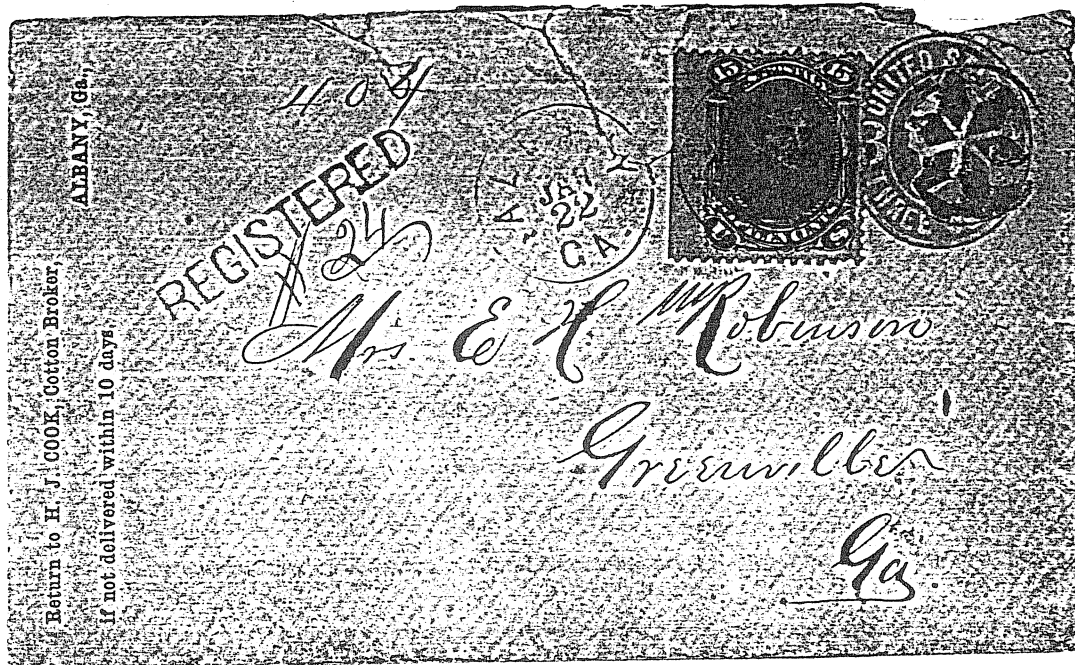 Return to H. J. COOK, Cotton Broker,
ALBANY, Ga.,
if not delivered within 10 days
REGISTERED
# 24
JAN
22
GA.
15 15
UNITED
THREE
Mrs. E H Robinson
Greenville
Ga